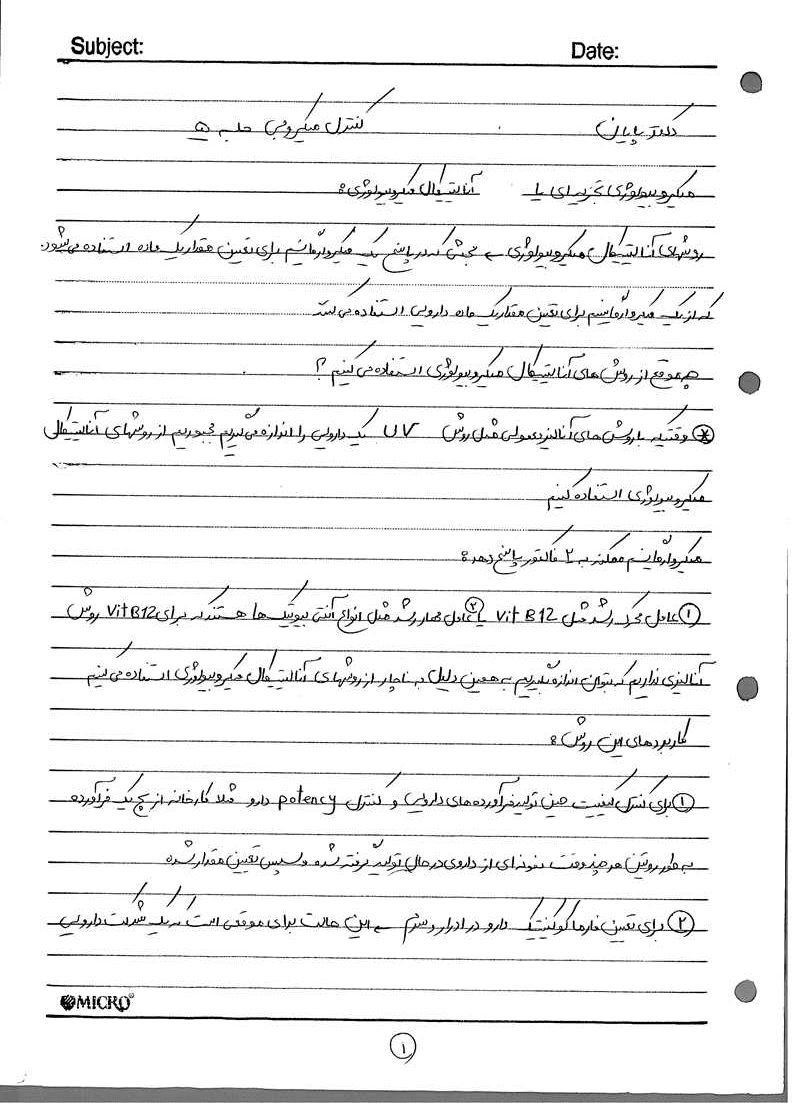 Subject: Date:
دکتر پایان کنترل میکروبی جلسه ۵
میکروبیولوژی تجزیه ای یا آنالیتیکال میکروبیولوژی:
روشهای آنالیتیکال میکروبیولوژی ← بخشی که در پاسخ یک میکروارگانیسم برای تعیین مقدار یک ماده استفاده می شود.
که از یک میکروارگانیسم برای تعیین مقدار یک ماده دارویی استفاده می کنند
چه موقع از روش های آنالیتیکال میکروبیولوژی استفاده می کنیم؟
* وقتیکه با روش های آنالیز معمولی مثل روش UV یک دارویی را اندازه می گیریم مجبوریم از روشهای آنالیتیکالی
میکروبیولوژی استفاده کنیم
میکروارگانیسم ممکنه به ۲ فاکتور پاسخ دهد:
① عامل محرک رشد مثل Vit B12 یا ② عامل مهار رشد مثل انواع آنتی بیوتیک ها هستند که برای Vit B12 روش
آنالیزی نداریم که بتوان اندازه بگیریم به همین دلیل به ناچار از روشهای آنالیتیکال میکروبیولوژی استفاده می کنیم
کاربردهای این روش:
① برای کنترل کیفیت حین تولید فرآورده های دارویی و کنترل potency دارو مثلا کارخانه از بچ یک فرآورده
به طور روتین هر چند وقت نمونه ای از داروی در حال تولید گرفته شده و سپس تعیین مقدار شده
② برای تعیین فارماکوکینتیک دارو در ادرار و سرم ← این حالت برای موقعی است که یک شرکت دارویی
MICRO
۱